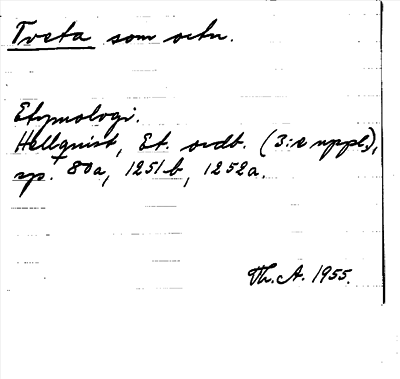 Tveta som ortn.
Etymologi.
Hellquist, Et. ordb. (3:e uppl.),
sp. 80a, 1251b, 1252a.
Th. A. 1955.